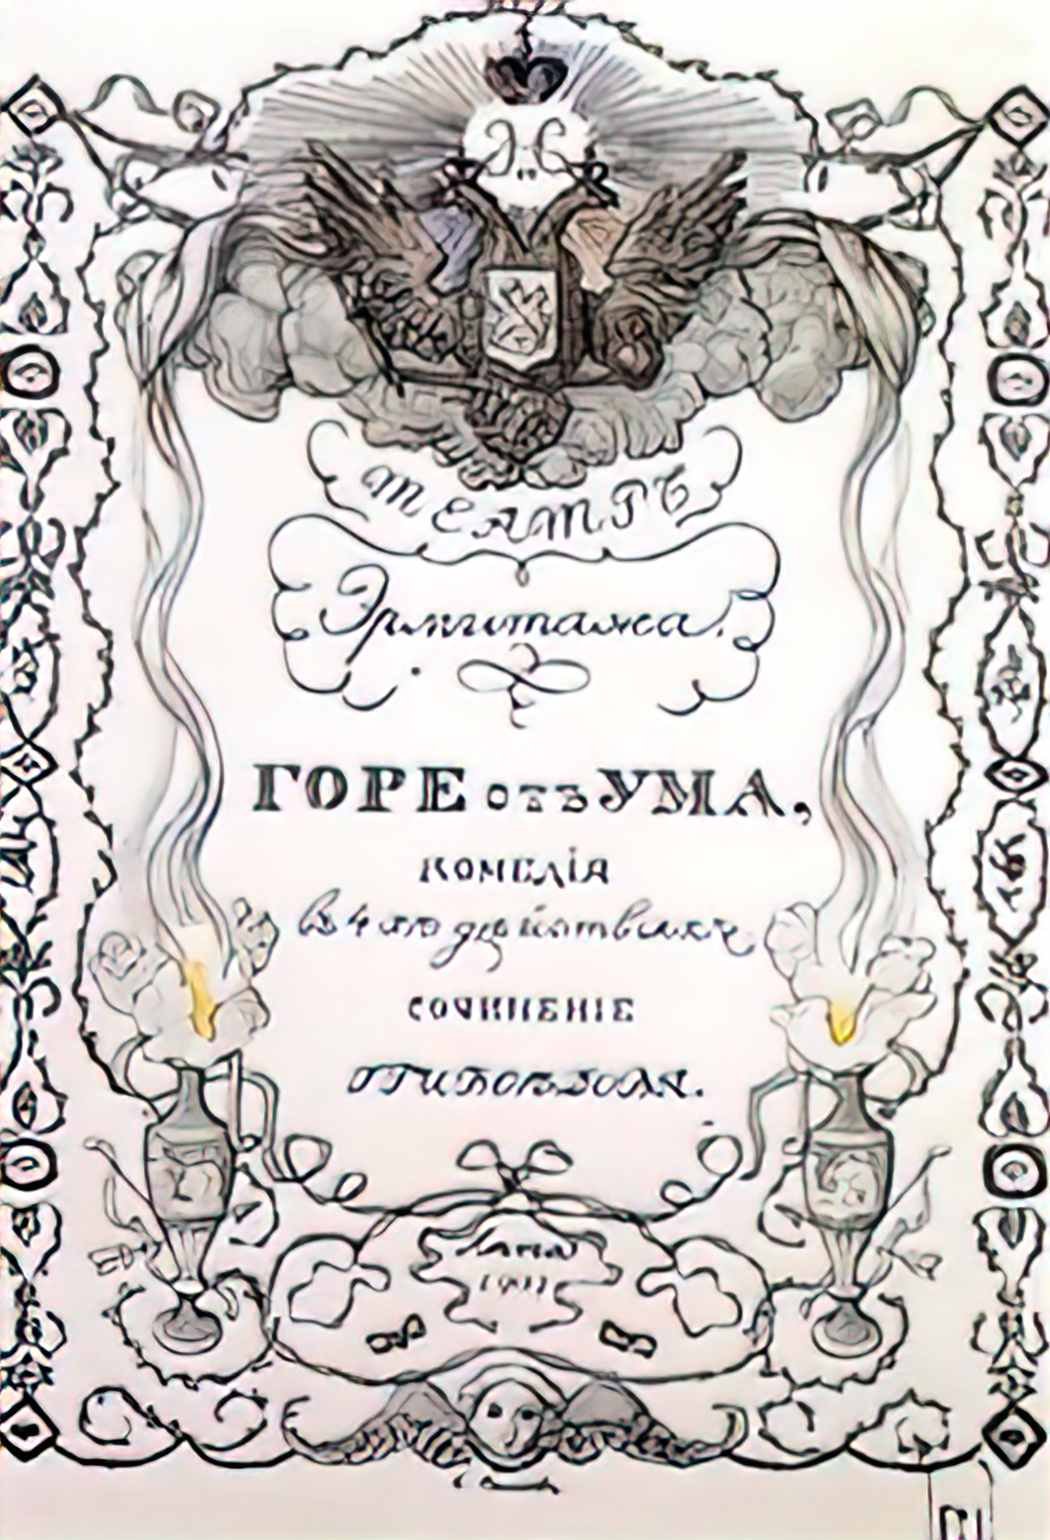 ТЕАТРЪ
Эрмитажа.
ГОРЕ отъ УМА,
КОМЕДІЯ
въ 4хъ дѣйствіяхъ
СОЧИНЕНІЕ
ГРИБОѢДОВА.